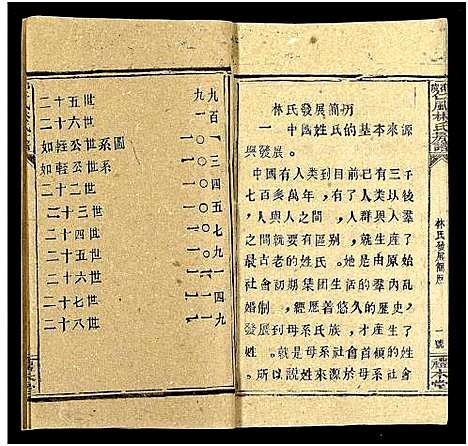 林氏发展簡历
一 中國姓氏的基本來源
與發展。
中國有人类到目前己有三千
七百多萬年，有了人群與人羣
，人與人之間，人與人羣
之間就要有區别，就生產了
最古老的姓氏。她是由原始
社會初期集团生活的內乱
婚制，經歷着悠久的歷史，
發展到母系氏族，才産生了
姓。就是母系社會首領的姓
。所以説姓來源於母系社會
林氏發展簡歷
一號
本堂
二十五世 九九
二十六世 一百
如輕公世系圖 一〇一
如輕公世系 一〇三
二十二世 一〇四
二十三世 一〇五
二十四世 一〇七
二十五世 一〇九
二十六世 一一一
二十七世 一一四
二十八世 一一九